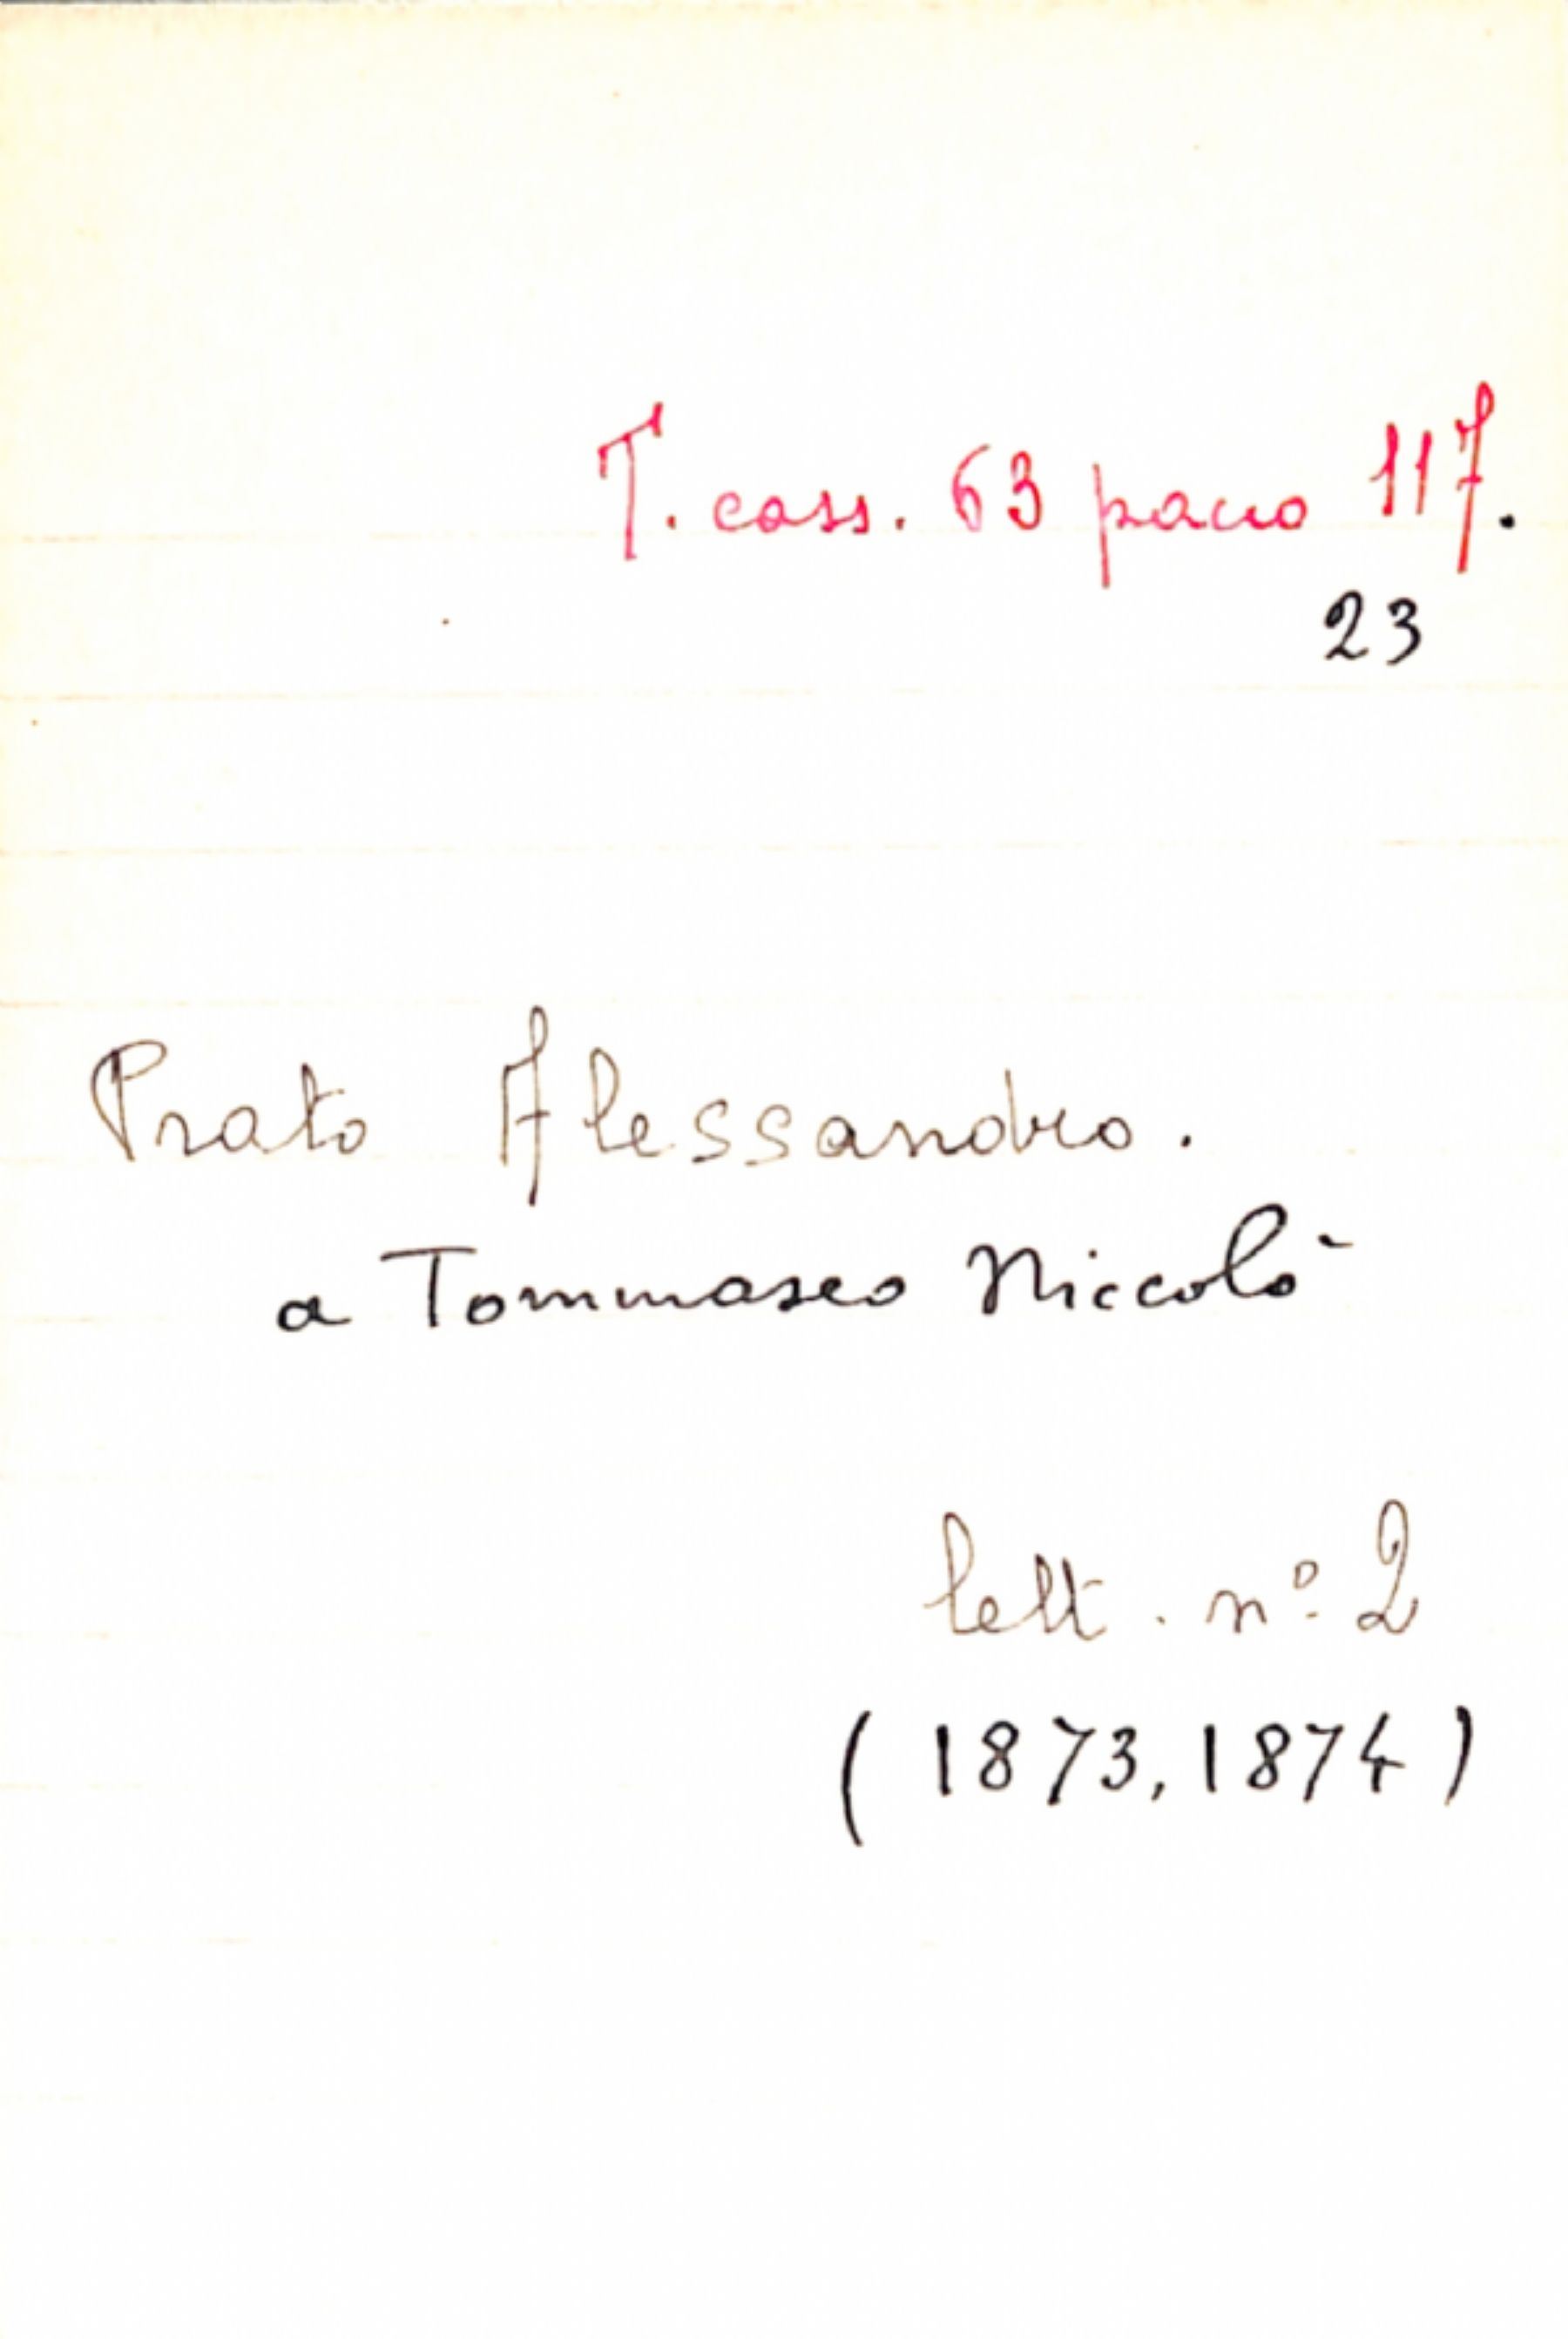 T. cass. 63 pacco 117.
23
Prato Alessandro.
a Tommaseo Niccolò
lett. nº 2
(1873, 1874)